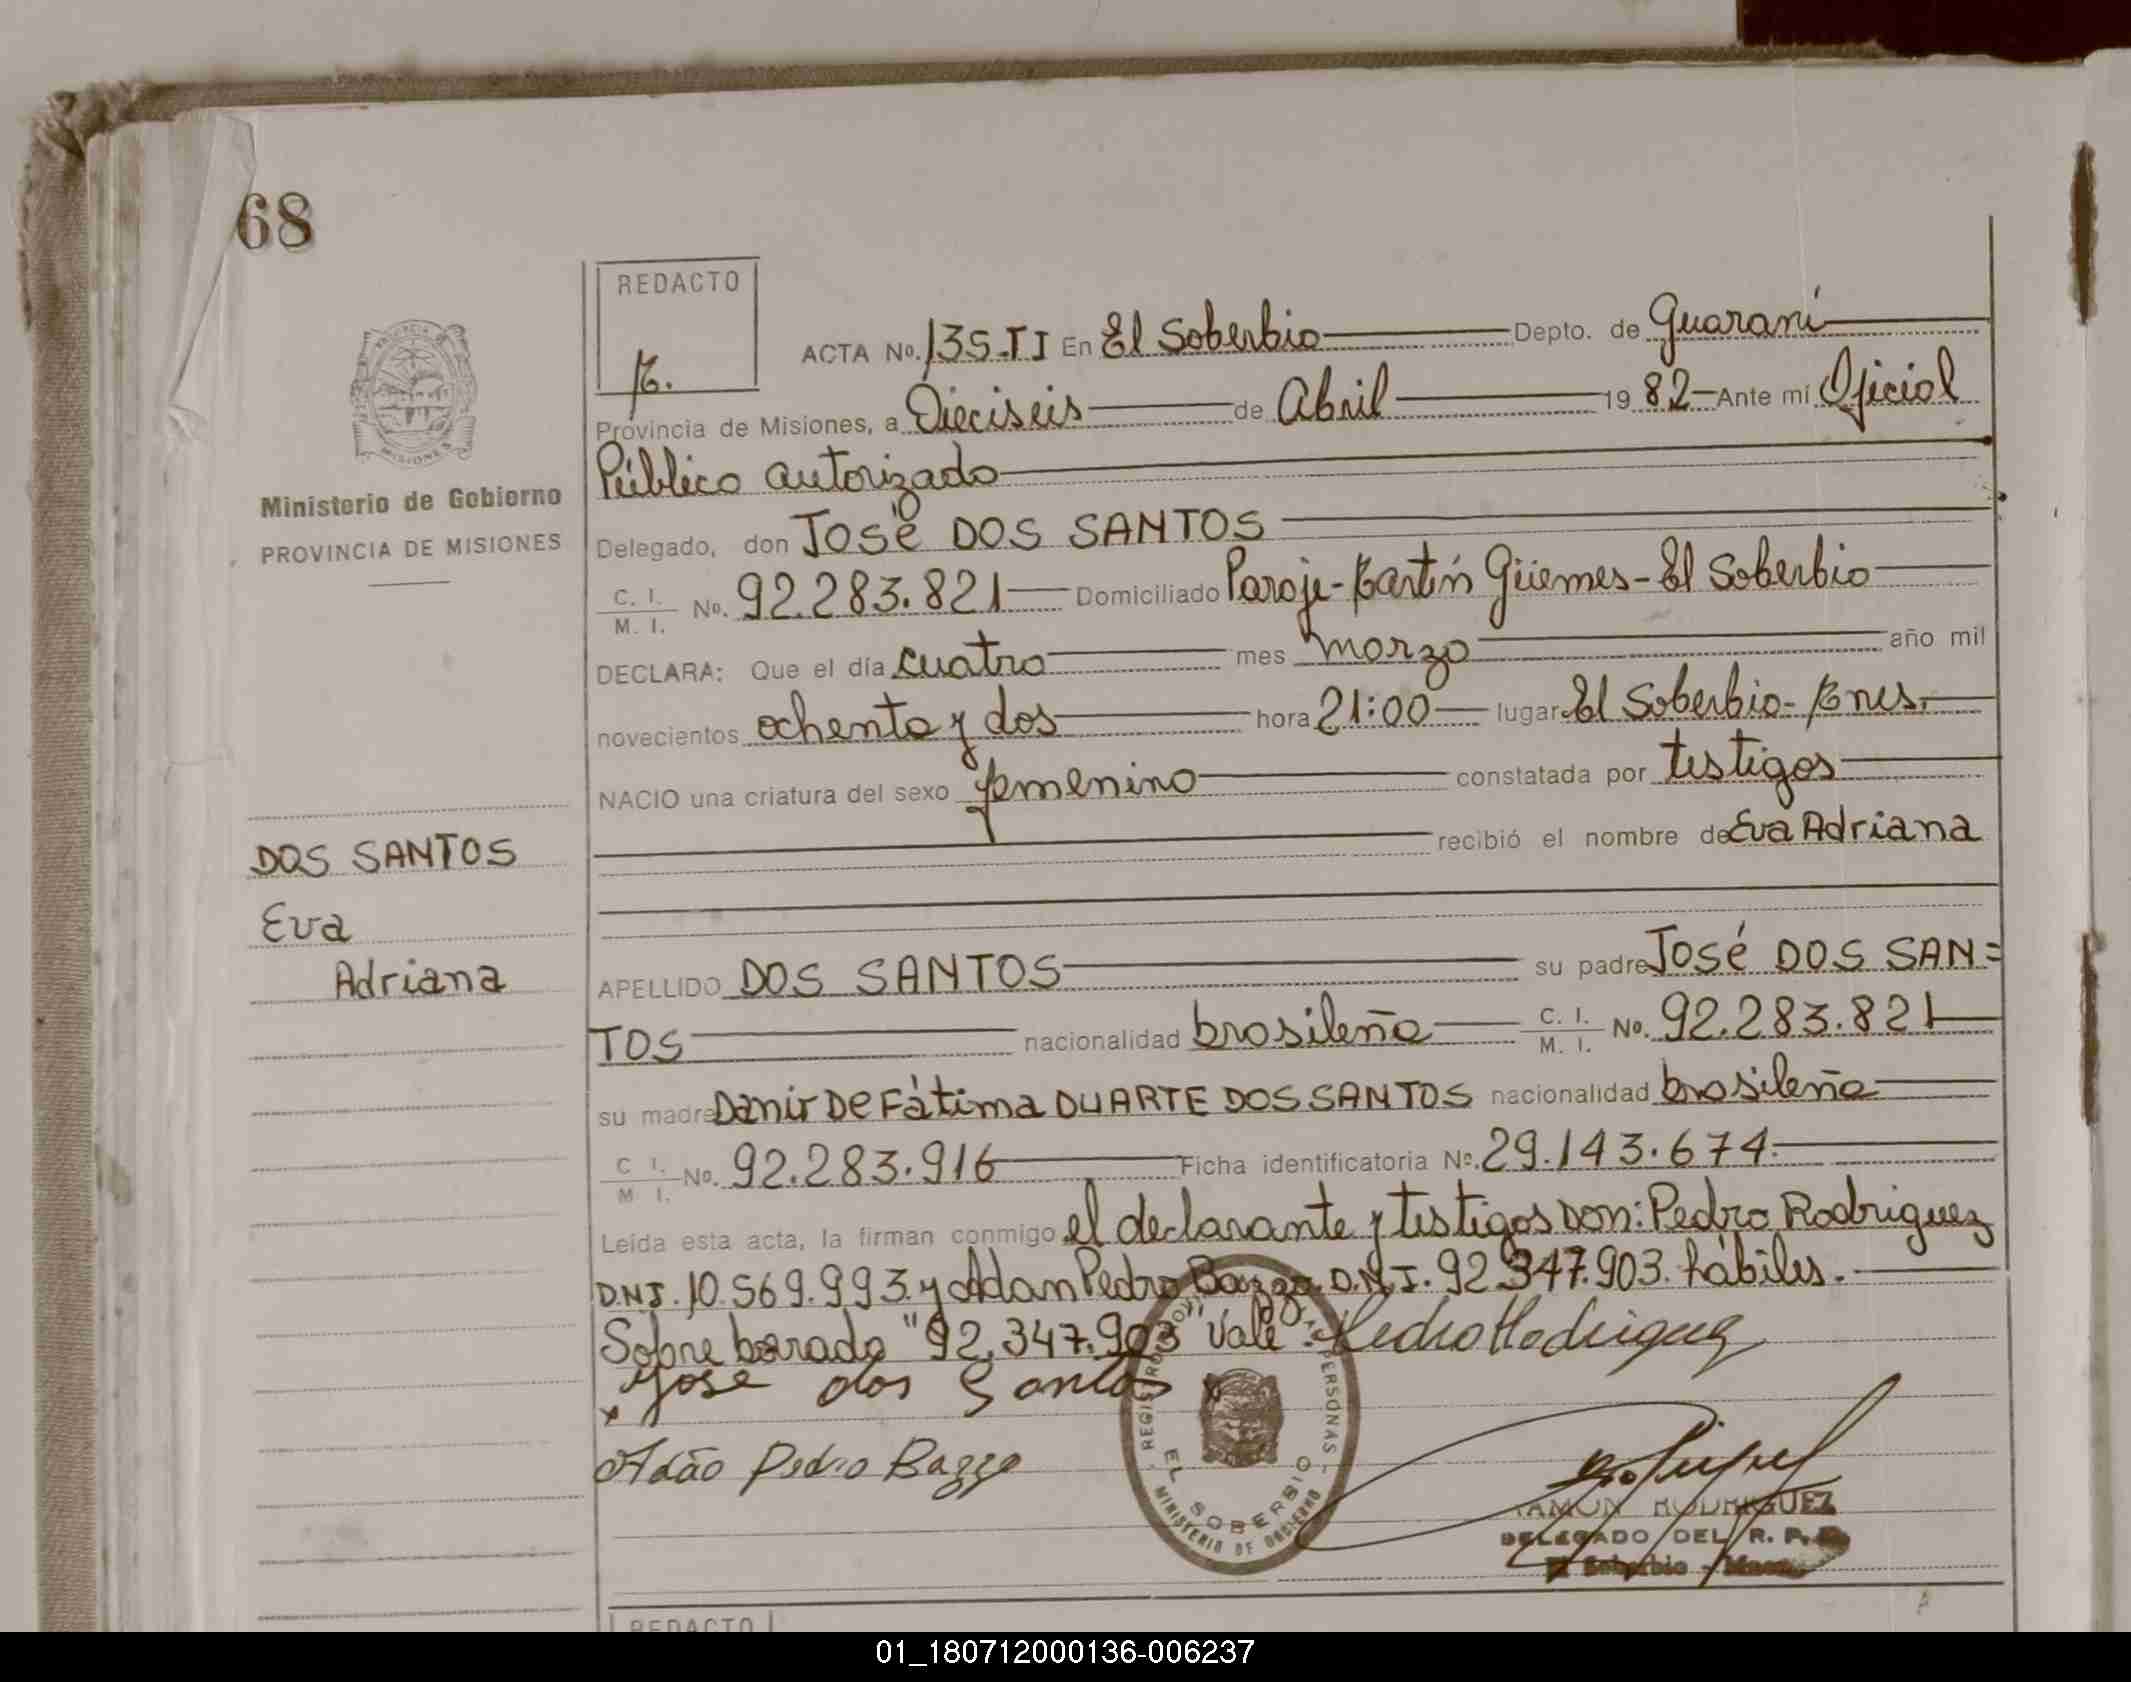 68
REDACTO
ACTA No. 135.TI En El Soberbio Depto. de Guaraní
Provincia de Misiones, a Dieciseis de Abril 1982 Ante mí Oficial
Público autorizado
Ministerio de Gobierno
PROVINCIA DE MISIONES
Delegado, don José DOS SANTOS
C. I.
M. I.
No. 92.283.821 Domiciliado Paraje-Martín Güemes-El Soberbio
DECLARA: Que el día cuatro mes marzo año mil
novecientos ochenta y dos hora 21:00 lugar El Soberbio-Mnes.
NACIO una criatura del sexo femenino constatada por testigos
recibió el nombre de Eva Adriana
DOS SANTOS
Eva
Adriana
APELLIDO DOS SANTOS su padre José DOS SAN=
TOS nacionalidad brasileña C. I. M. I. No. 92.283.821
su madre Danir De Fàtima DUARTE DOS SANTOS nacionalidad brasileña
C I. M I. No. 92.283.916 Ficha identificatoria Nº. 29.143.674.
Leída esta acta, la firman conmigo el declarante y testigos Don: Pedro Rodriguez
D.N.I. 10.569.993. y Adam Pedro Bazzo D.N.I. 92.347.903. hábiles.
Sobre borrado "92.347.903" Vale. Pedro Rodriguez
x José dos Santos x
Adão Pedro Bazzo
REGISTRO PERSONAS
EL SOBERBIO
MINISTERIO DE GOBIERNO
RAMON RODRIGUEZ
DELEGADO DEL R. P.
El Soberbio -
REDACTO
01_180712000136-006237